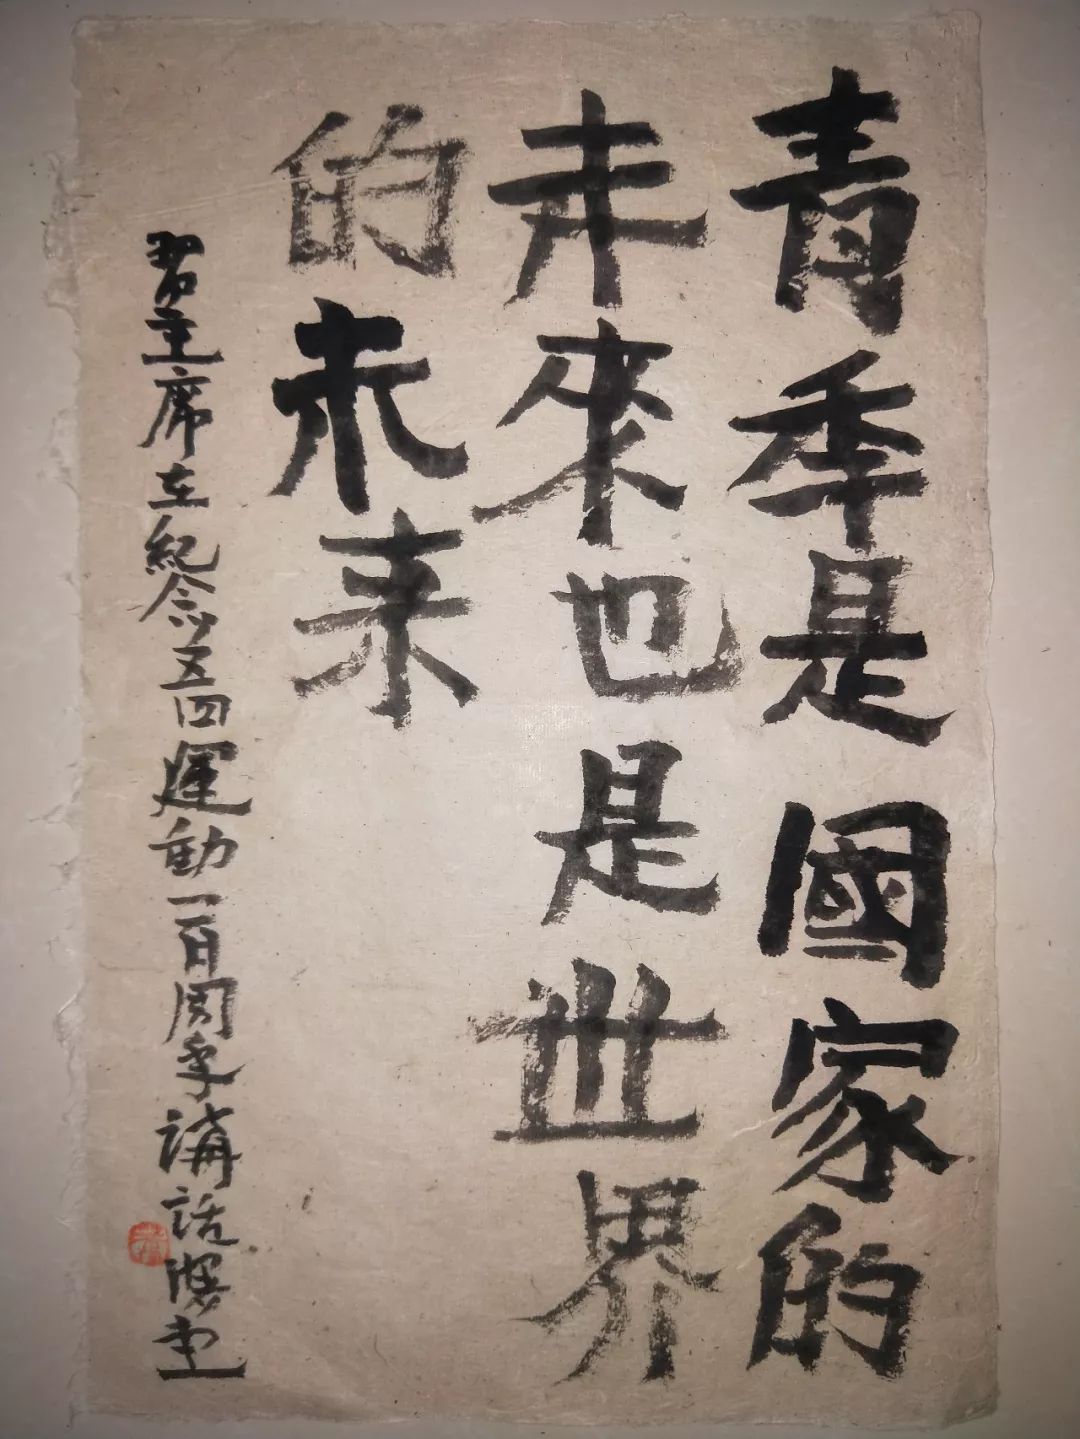 青年是國家的
未來也是世界
的未来
習主席在紀念五四運動一百周年講話